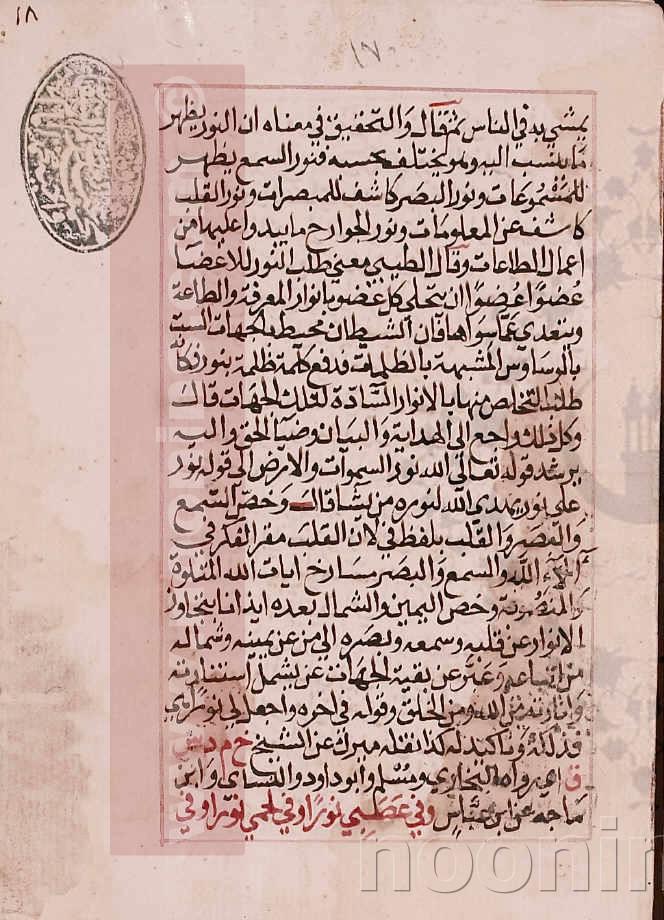 ١٨
١٧
يمشي به في الناس ثم قال والتحقيق في معناه ان النور يظهر
ما ينسب اليه وهو يختلف بحسبه فنور السمع يظهر
للمسموعات ونور البصر كاشف للمبصرات ونور القلب
كاشف عن المعلومات ونور الجوارح ما يبدوا عليها من
اعمال الطاعات وقال الطيبي معنى طلب النور للاعضا
عضوا عضوا ان يتحلى كل عضو بانوار المعرفة والطاعة
ويتعدي عما سواها فان الشيطان محيط بالجهات الست
بالوساوس المشبهة بالظلمات فدفع كل ظلمة بنور فكانه
طلب التخلص منها بالانوار السادة لتلك الجهات قال
وكل ذلك راجع الى الهداية والبيان وضيا الحق واليه
يرشد قوله تعالى الله نور السموات والارض الى قوله نور
على نور يهدي الله لنوره من يشا قال وخص السمع
والبصر والقلب بلفظ في لان القلب مقر الفكر في
آلاء الله والسمع والبصر مسارح ايات الله المتلوة
والمنصوبة وخص اليمين والشمال بعده ايذانا بتجاوز
الانوار عن قلبه وسمعه وبصره الى من عن يمينه وشماله
من اتباعه وعبر عن بقية الجهات عن يشمل استنارته
وانارته من الله ومن الخلق وقوله في اخره واجعل لي نورا
فذلكة وتاكيد له كذا نقله ميرك عن الشيخ خ م د س
ق اي رواه البخاري ومسلم وابو داود والنساي وابن
ماجه عن ابن عباس وفي عصبي نورا وفي لحمي نورا وفي
noonin